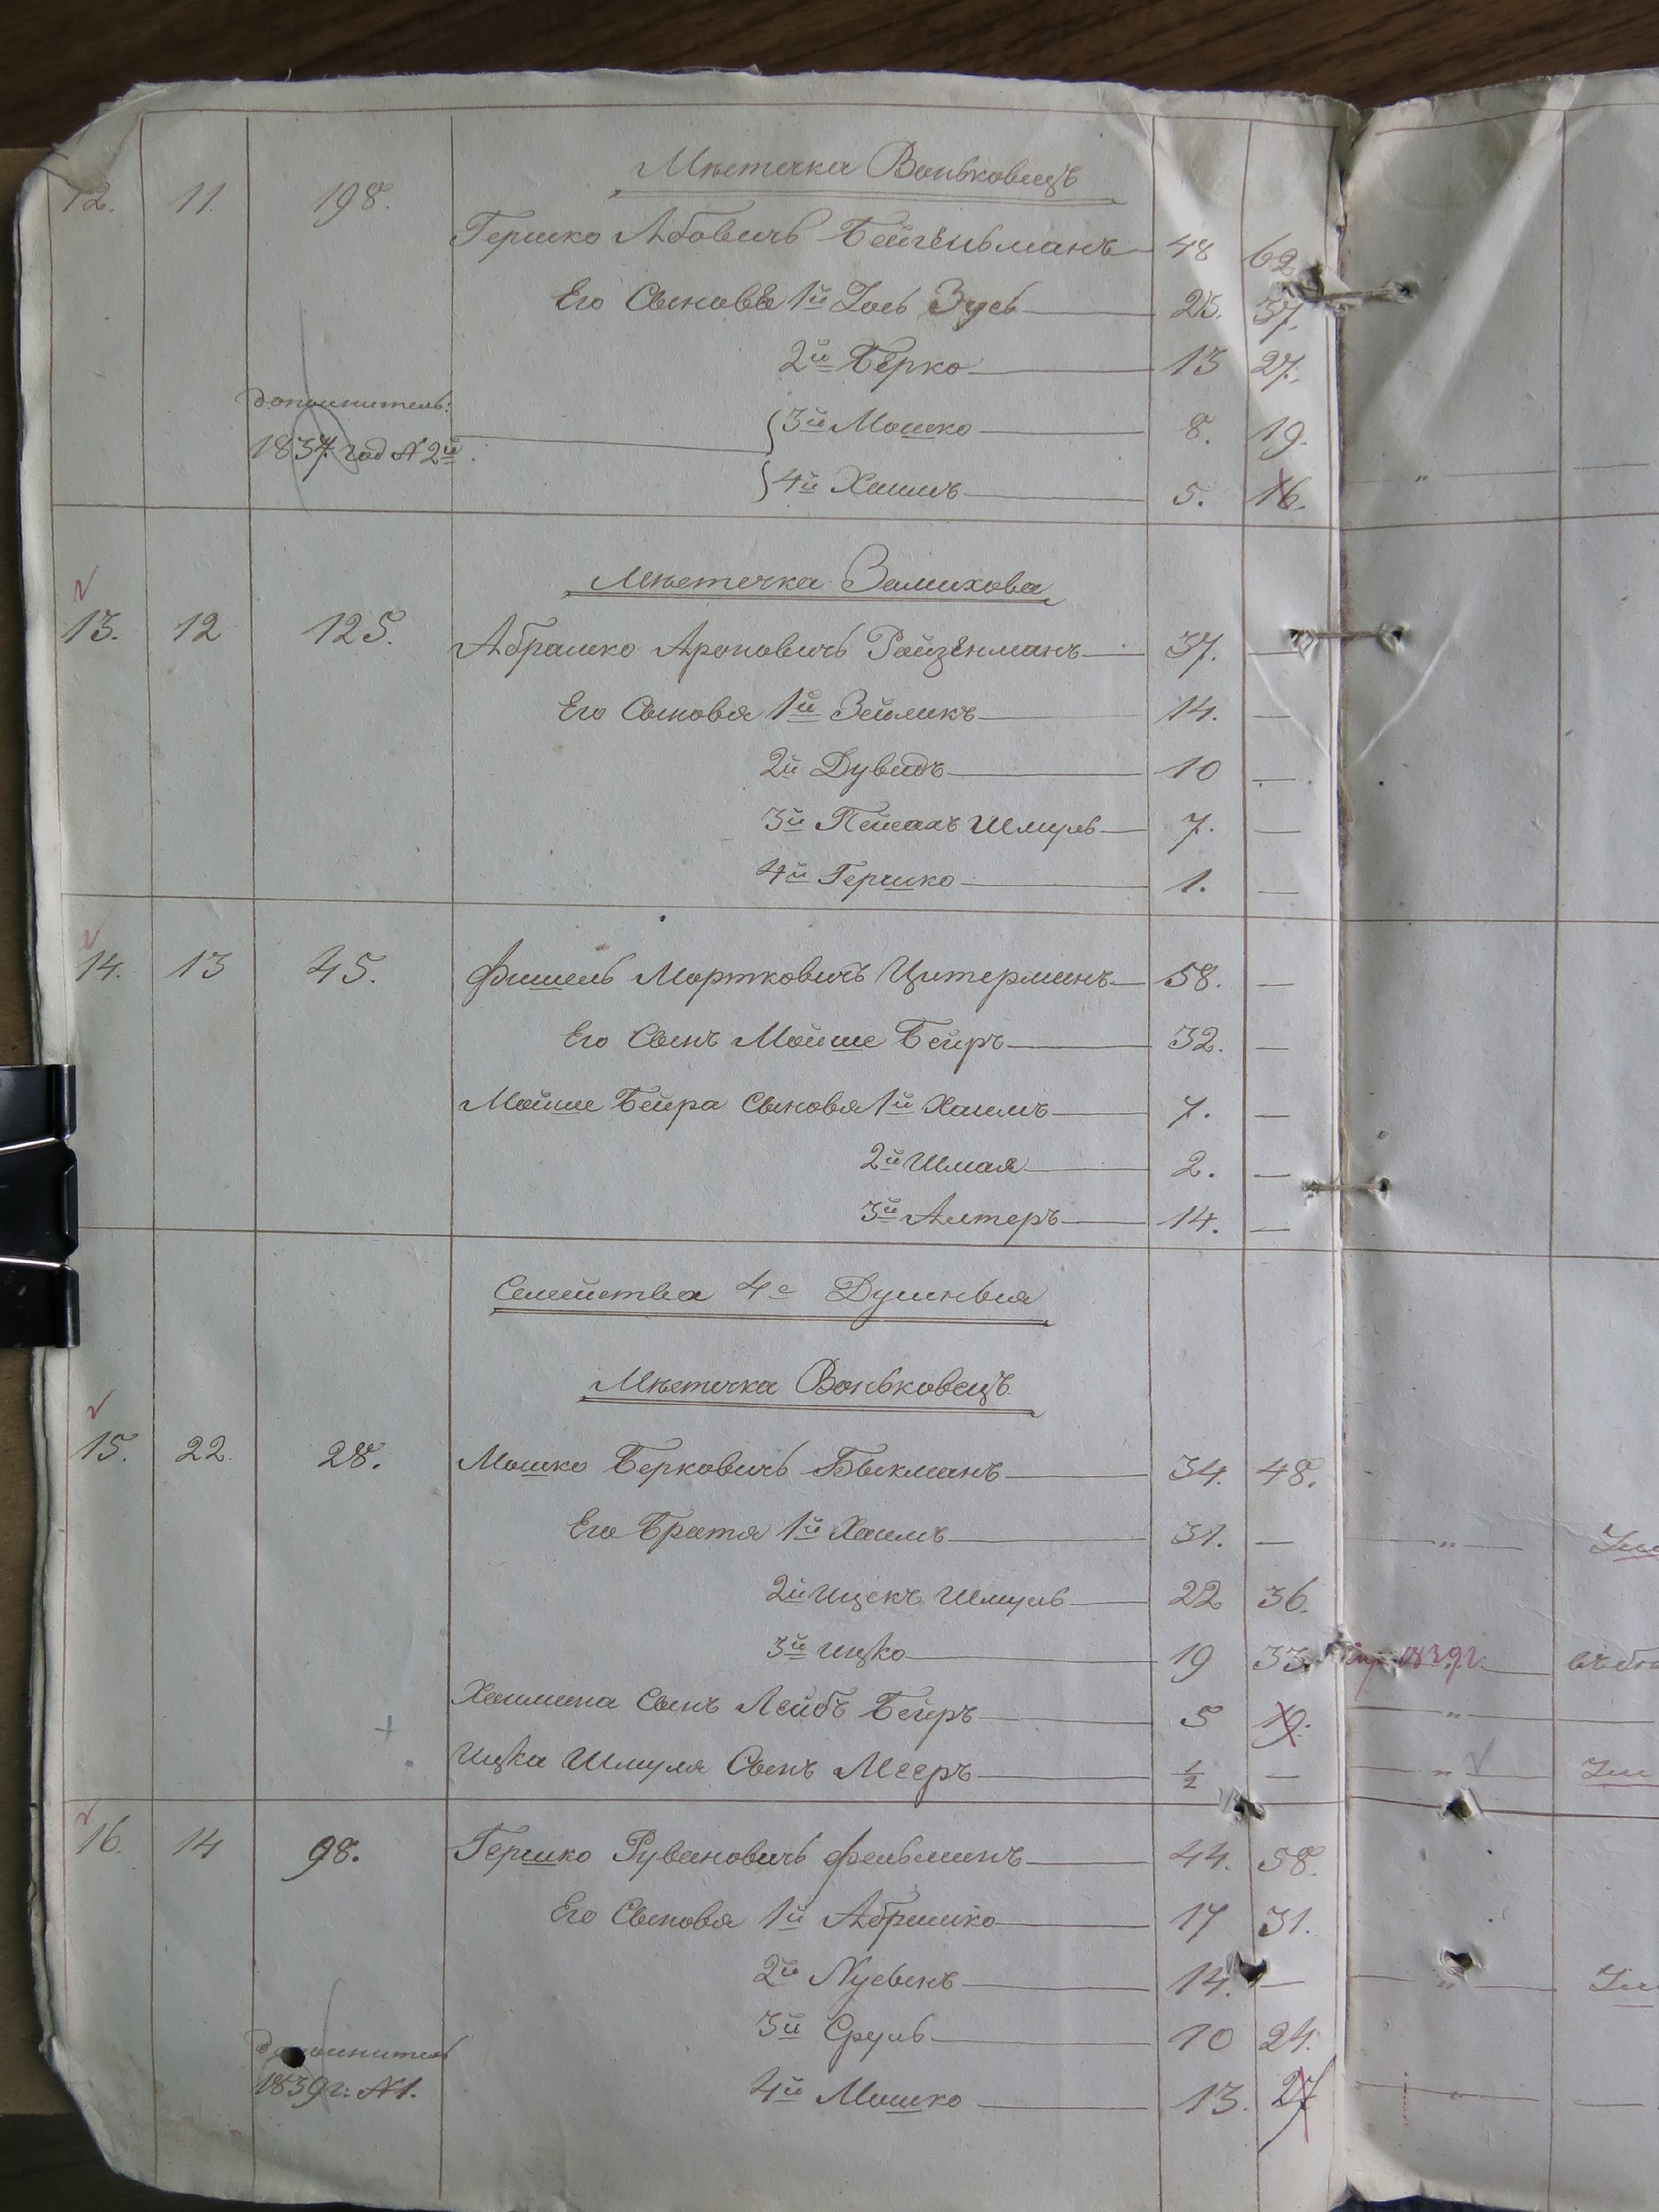 Мѣстечка Воньковецъ
12. 11. 198.
Гершко Абовичъ Бейгельманъ 48 62
Его Сыновья 1й Іось Зусь 23. 37.
2й Берко 13 27.
дополнитель:
1837 год N 2й. 3й Мошко 8. 19.
4й Хаимъ 5. 16. "
Мѣстечка Замихова
13. 12 125. Абрамко Ароновичъ Ройзенманъ 37. —
Его Сыновья 1й Зейликъ 14. —
2й Дувидъ 10 —
3й Пейсахъ Шмуль 7. —
4й Гершко 1. —
14. 13 45. Фишель Мортковичъ Цитерманъ 58. —
Его Сынъ Мойше Бейръ 32. —
Мойше Бейра Сыновья 1й Хаимъ 7. —
2й Шмая 2. —
3й Алтеръ 14. —
Семейства 4е Душныя
Мѣстечка Воньковецъ
15. 22. 28. Мошко Берковичъ Быкманъ 34. 48.
Его Братья 1й Хаимъ 31. — "
2й Ицекъ Шмуль 22 36.
3й Ицко 19 33. 1839г.
Хаимина Сынъ Лейбъ Бейръ 5 19. "
Ицка Шмуля Сынъ Мееръ ½ — "
16. 14 98. Гершко Рувановичъ Фельманъ 44. 58.
Его Сыновья 1й Абрамко 17 31.
2й Нусынъ 14. — "
3й Сруль 10 24.
дополнитель
1839г: N 1. 4й Мошко 13. 27 "